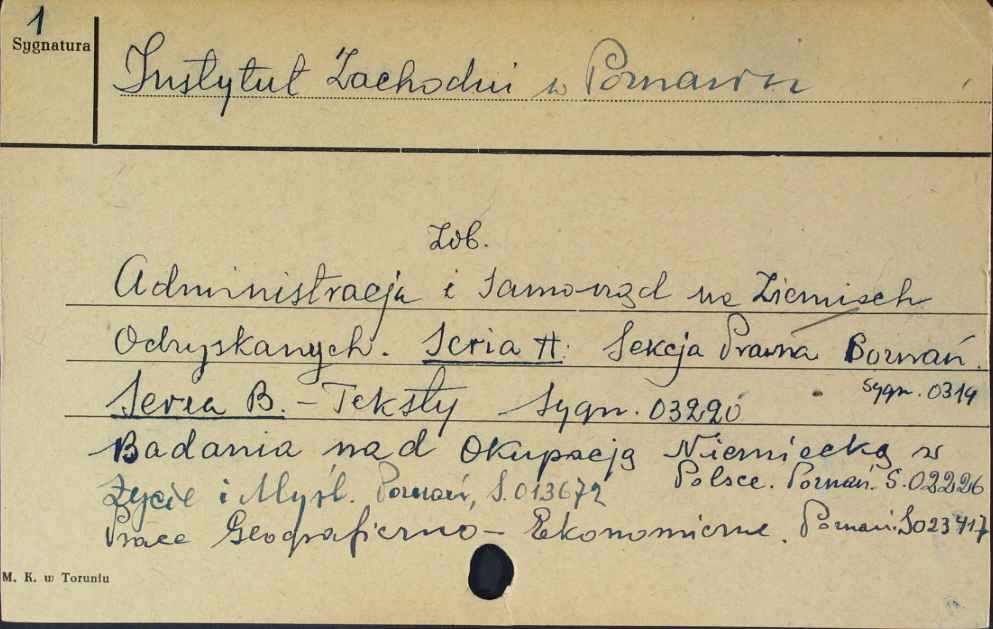 1
Sygnatura
Instytut Zachodni w Poznaniu
Zob.
Administracja i Samorząd na Ziemiach
Odzyskanych. Seria A. Sekcja Prawna Poznań.
Sygn. 0314
Seria B. – Teksty Sygn. 03220
Badania nad Okupacją Niemiecką w
Polsce. Poznań. S. 022226
Życie i Myśl. Poznań, S. 013672
Prace Geograficzno – Ekonomiczne. Poznań. S023417
M. K. w Toruniu